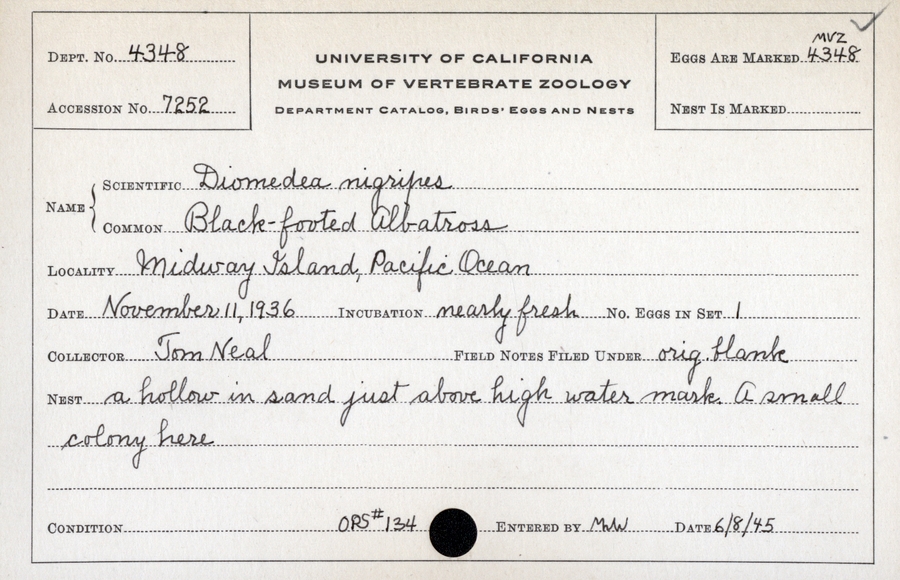 Dept. No. 4348
Accession No. 7252
UNIVERSITY OF CALIFORNIA
MUSEUM OF VERTEBRATE ZOOLOGY
Department Catalog, Birds' Eggs and Nests
MVZ
Eggs Are Marked 4348
Nest Is Marked
Name
Scientific Diomedea nigripes
Common Black-footed Albatross
Locality Midway Island, Pacific Ocean
Date November 11, 1936 Incubation nearly fresh No. Eggs in Set 1
Collector Tom Neal Field Notes Filed Under orig. blank
Nest a hollow in sand just above high water mark. A small
colony here
Condition OPS#134 Entered by MWW Date 6/8/45